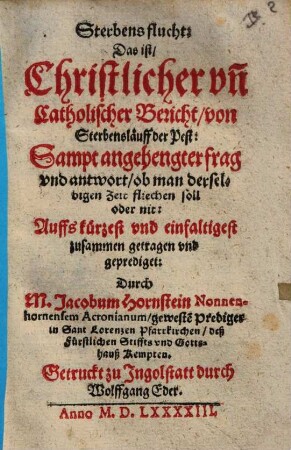 Sterbens flucht:
Das ist/
Christlicher vñ
Catholischer Bericht/ von
Sterbensläuff der Pest:
Sampt angehengter frag
vnd antwort/ ob man dersel-
bigen Zeit fliechen soll
oder nit:
Auffs kürzest vnd einfaltigest
zusammen getragen vnd
geprediget:
Durch
M. Jacobum Hornstein Nonnen-
hornensem Acronianum/ gewestẽ Prediger
in Sant Lorenzen Pfarrkirchen/ deß
Fürstlichen Stiffts vnd Gotts-
hauß Kempten.
Getruckt zu Ingolstatt durch
Wolffgang Eder.
Anno M. D. LXXXXIII.